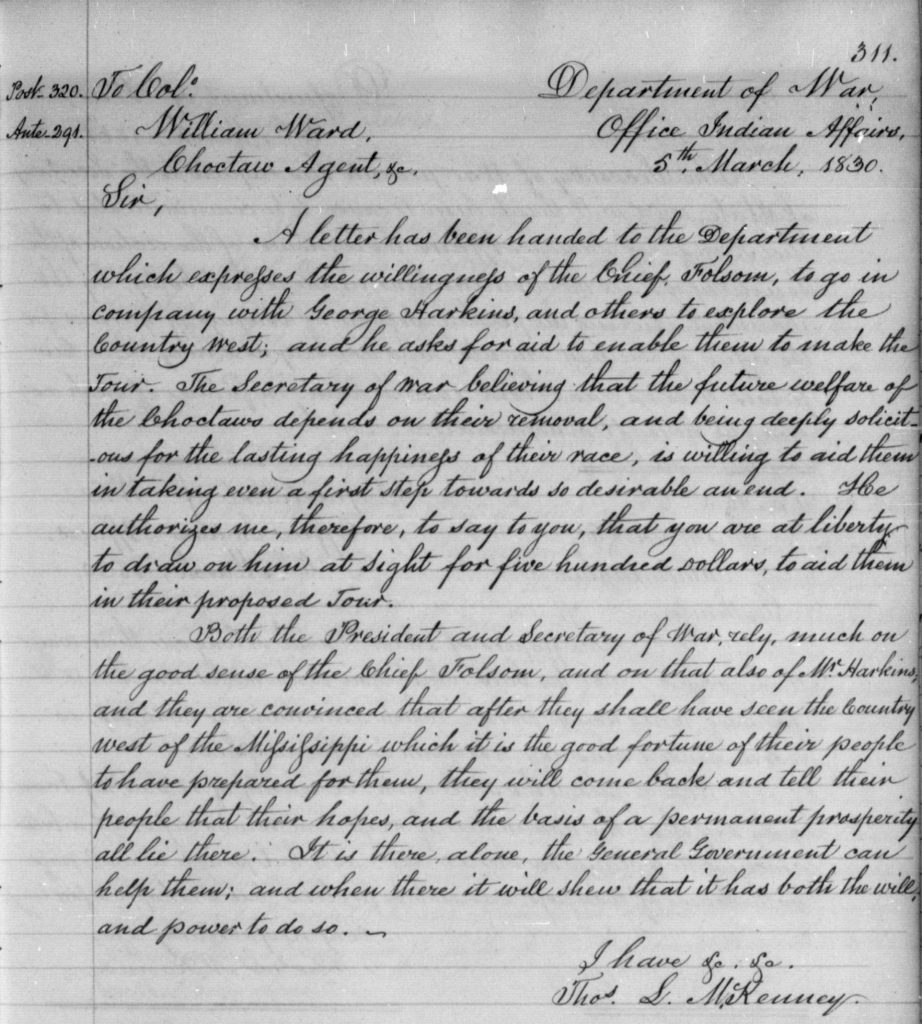 311.
Post-320. To Col.o Department of War,
Ante-291. William Ward, Office Indian Affairs,
Choctaw Agent, &c. 5th March, 1830.
Sir,
A letter has been handed to the Department
which expresses the willingness of the Chief, Folsom, to go in
company with George Harkins, and others to explore the
Country west; and he asks for aid to enable them to make the
Tour. The Secretary of war believing that the future welfare of
the Choctaws depends on their removal, and being deeply solicit-
-ous for the lasting happiness of their race, is willing to aid them
in taking even a first step towards so desirable an end. He
authorizes me, therefore, to say to you, that you are at liberty
to draw on him at sight for five hundred Dollars, to aid them
in their proposed Tour.
Both the President and Secretary of War, rely, much on
the good sense of the Chief Folsom, and on that also of Mr. Harkins,
and they are convinced that after they shall have seen the Country
west of the Mississippi which it is the good fortune of their people
to have prepared for them, they will come back and tell their
people that their hopes, and the basis of a permanent prosperity
all lie there. It is there, alone, the General Government can
help them; and when there it will shew that it has both the will,
and power to do so. —
I have &c. &c.
Thos. L. McKenney.